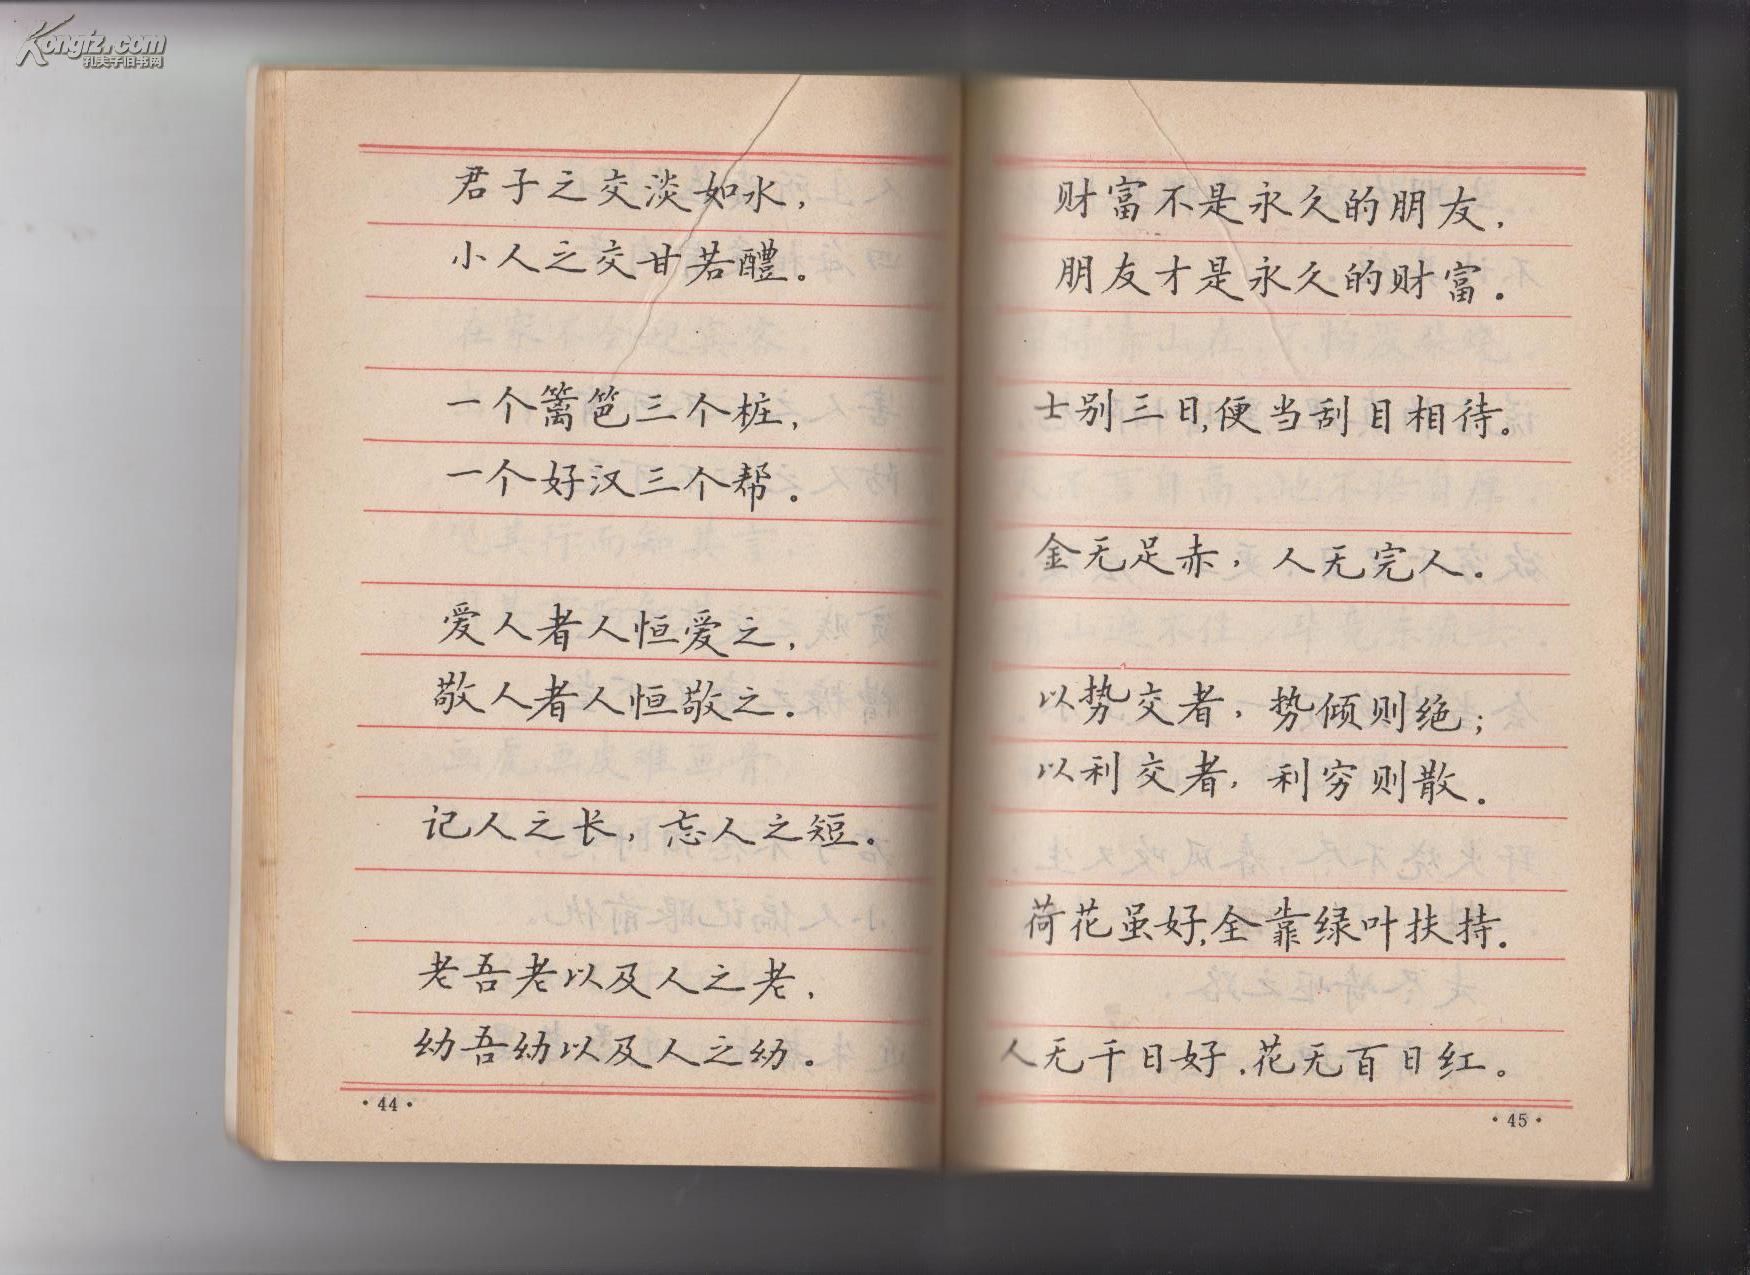 Kongfz.com
孔夫子旧书网
君子之交淡如水，
小人之交甘若醴。
一个篱笆三个桩，
一个好汉三个帮．
爱人者人恒爱之，
敬人者人恒敬之．
记人之长，忘人之短。
老吾老以及人之老，
幼吾幼以及人之幼。
·44·
财富不是永久的朋友，
朋友才是永久的财富．
士别三日，便当刮目相待。
金无足赤，人无完人．
以势交者，势倾则绝；
以利交者，利穷则散．
荷花虽好，全靠绿叶扶持．
人无千日好，花无百日红。
·45·